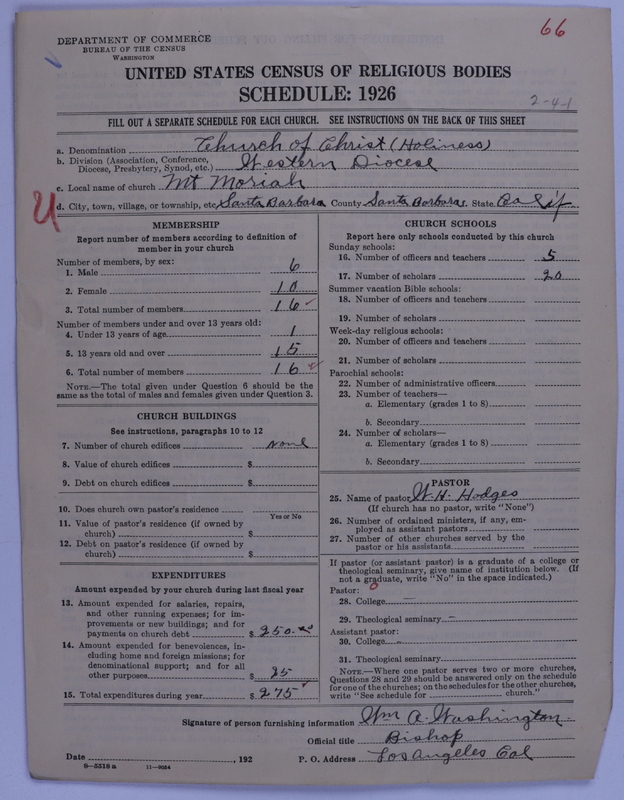 66
DEPARTMENT OF COMMERCE
BUREAU OF THE CENSUS
WASHINGTON
UNITED STATES CENSUS OF RELIGIOUS BODIES
SCHEDULE: 1926
2-4-1
FILL OUT A SEPARATE SCHEDULE FOR EACH CHURCH. SEE INSTRUCTIONS ON THE BACK OF THIS SHEET
a. Denomination Church of Christ (Holiness)
b. Division (Association, Conference, Diocese, Presbytery, Synod, etc.) Western Diocese
c. Local name of church Mt Moriah
U d. City, town, village, or township, etc. Santa Barbara County Santa Barbara State Calif
MEMBERSHIP
Report number of members according to definition of
member in your church
Number of members, by sex:
1. Male 6
2. Female 10
3. Total number of members 16
Number of members under and over 13 years old:
4. Under 13 years of age 1
5. 13 years old and over 15
6. Total number of members 16
NOTE.—The total given under Question 6 should be the
same as the total of males and females given under Question 3.
CHURCH BUILDINGS
See instructions, paragraphs 10 to 12
7. Number of church edifices None
8. Value of church edifices $
9. Debt on church edifices $
10. Does church own pastor's residence
Yes or No
11. Value of pastor's residence (if owned by
church) $
12. Debt on pastor's residence (if owned by
church) $
EXPENDITURES
Amount expended by your church during last fiscal year
13. Amount expended for salaries, repairs,
and other running expenses; for im-
provements or new buildings; and for
payments on church debt $ 250.00
14. Amount expended for benevolences, in-
cluding home and foreign missions; for
denominational support; and for all
other purposes $ 25
15. Total expenditures during year $ 275
CHURCH SCHOOLS
Report here only schools conducted by this church
Sunday schools:
16. Number of officers and teachers 5
17. Number of scholars 20
Summer vacation Bible schools:
18. Number of officers and teachers
19. Number of scholars
Week-day religious schools:
20. Number of officers and teachers
21. Number of scholars
Parochial schools:
22. Number of administrative officers
23. Number of teachers—
a. Elementary (grades 1 to 8)
b. Secondary
24. Number of scholars—
a. Elementary (grades 1 to 8)
b. Secondary
PASTOR
25. Name of pastor W. H. Hodges
(If church has no pastor, write "None")
26. Number of ordained ministers, if any, em-
ployed as assistant pastors
27. Number of other churches served by the
pastor or his assistants
If pastor (or assistant pastor) is a graduate of a college or
theological seminary, give name of institution below. (If
not a graduate, write "No" in the space indicated.)
Pastor: 0
28. College —
29. Theological seminary —
Assistant pastor:
30. College —
31. Theological seminary
NOTE.—Where one pastor serves two or more churches,
Questions 28 and 29 should be answered only on the schedule
for one of the churches; on the schedules for the other churches,
write "See schedule for church."
Signature of person furnishing information Wm A. Washington
Official title Bishop
Date , 192 P. O. Address Los Angeles Cal
8-5318 a 11-9054